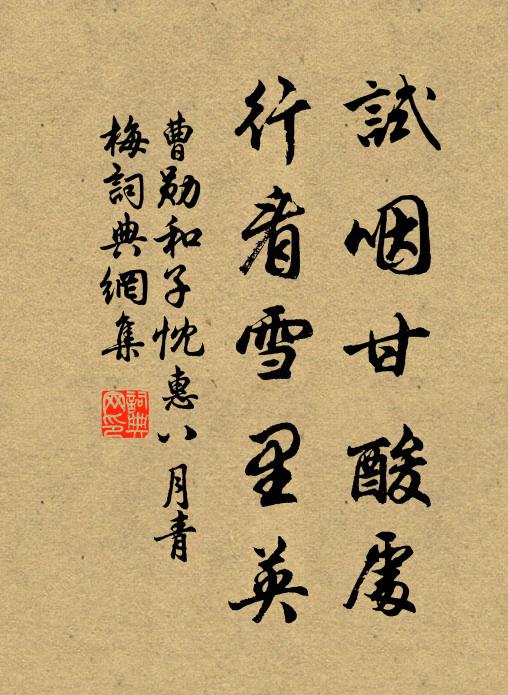 試咽甘酸處
行看雪里英
曹勛和子忱惠八月青
梅詞典網集
詞典網印